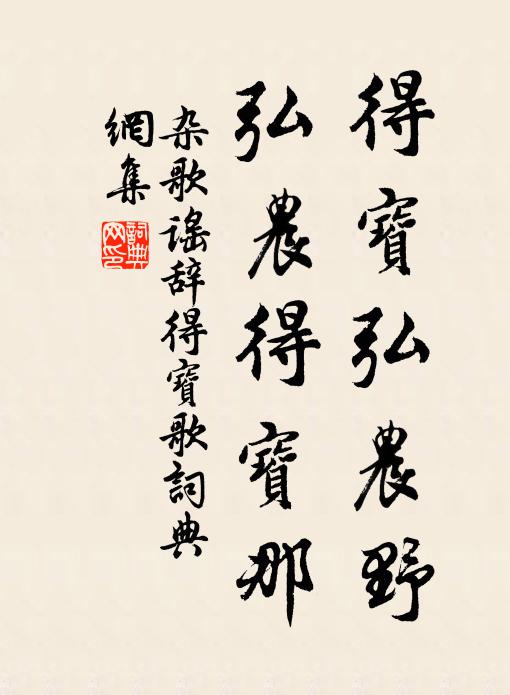 得寶弘農野
弘農得寶那
杂歌谣辞得寶歌詞典
網集
詞典
网印